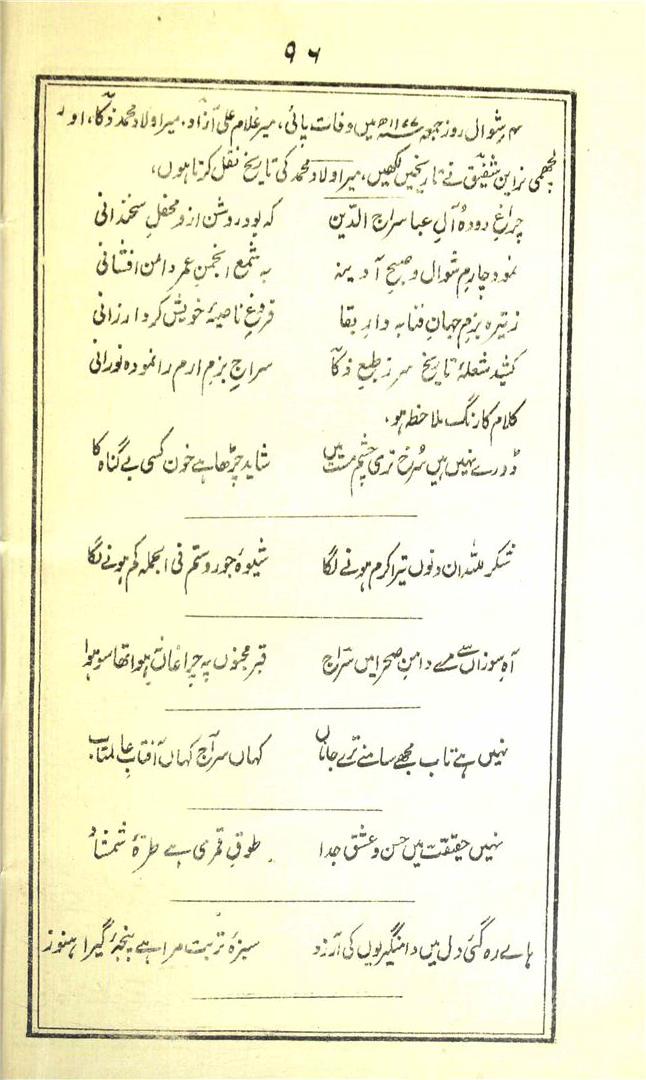 ۹۶
۴ شوال روز جمعہ ۱۱۷۷ھ میں وفات پائی، میر غلام علی آزاد۔ میر اولاد محمد ذکا، اور
لچھمی نراین شفیق نے تاریخیں لکھیں، میر اولاد محمد کی تاریخ نقل کرتا ہوں،
چراغِ دودہ آلِ عبا سراج الدین کہ بود روشن ازو محفلِ سخندانی
نمود چارمِ شوال و صبحِ آدینہ بہ شمعِ انجمنِ عمر دامن افشانی
زتیرہ بزمِ جہانِ فنا بہ دارِ بقا فروغِ ناصیۂ خویش کرد ارزانی
کشید شعلۂ تاریخ سر ز طبعِ ذکا سراج بزمِ ارم را نمودہ نورانی
کلام کا رنگ ملاحظہ ہو۔
ڈورے نہیں ہیں سُرخ تری چشمِ مست میں شاید چڑھا ہے خون کسی بے گناہ کا
شکر للہ ان دنوں تیرا کرم ہونے لگا شیوۂ جور و ستم فی الجملہ کم ہونے لگا
آہِ سوزاں سے مرے دامنِ صحرا میں سراج قبرِ مجنوں پہ چراغاں نہ ہوا تھا سو ہوا
نہیں ہے تاب مجھے سامنے ترے جاناں کہاں سراج کہاں آفتابِ عالمتاب
نہیں حقیقت میں حسن و عشق جدا طوقِ قمری ہے طرۂ شمشاد
ہاے رہ گئی دل میں دامنگیریوں کی آرزو سبزۂ تربت مرا ہے پنجۂ گیرا ہنوز